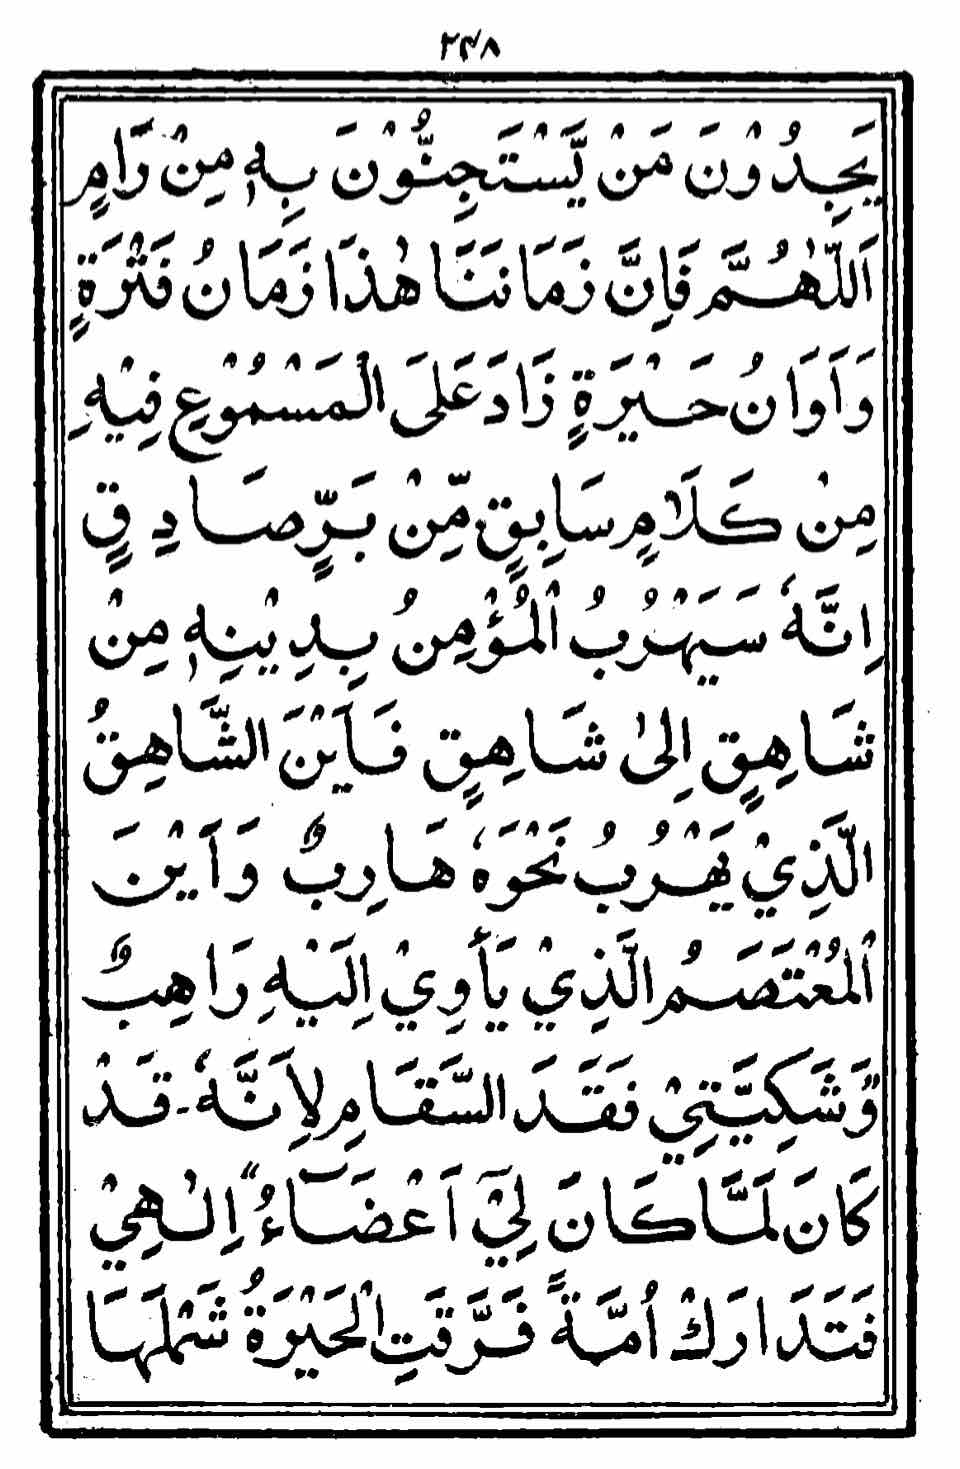 ۲۴۸
يَجِدُوْنَ مَنْ يَّسْتَجِنُّوْنَ بِهٖ مِنْ رَامٍ
اَللّٰهُمَّ فَاِنَّ زَمَانَنَا هٰذَا زَمَانُ فَتْرَةٍ
وَاَوَانُ حَيْرَةٍ زَادَ عَلَى الْمَسْمُوْعِ فِيْهِ
مِنْ كَلَامٍ سَابِقٍ مِّنْ بَرٍّ صَادِقٍ
اِنَّهٗ سَيَهْرُبُ الْمُؤْمِنُ بِدِيْنِهٖ مِنْ
شَاهِقٍ اِلىٰ شَاهِقٍ فَاَيْنَ الشَّاهِقُ
الَّذِيْ يَهْرُبُ نَحْوَهٗ هَارِبٌ وَاَيْنَ
الْمُعْتَصَمُ الَّذِيْ يَأْوِيْ اِلَيْهِ رَاهِبٌ
وَّشَكِيَّتِيْ فَقَدَ السَّقَامِ لِاَنَّهٗ قَدْ
كَانَ لَمَّا كَانَ لِيْ اَعْضَاءٌ اِلٰهِيْ
فَتَدَارَكْ اُمَّةً فَرَّقَتِ الْحَيْرَةُ شَمْلَهَا